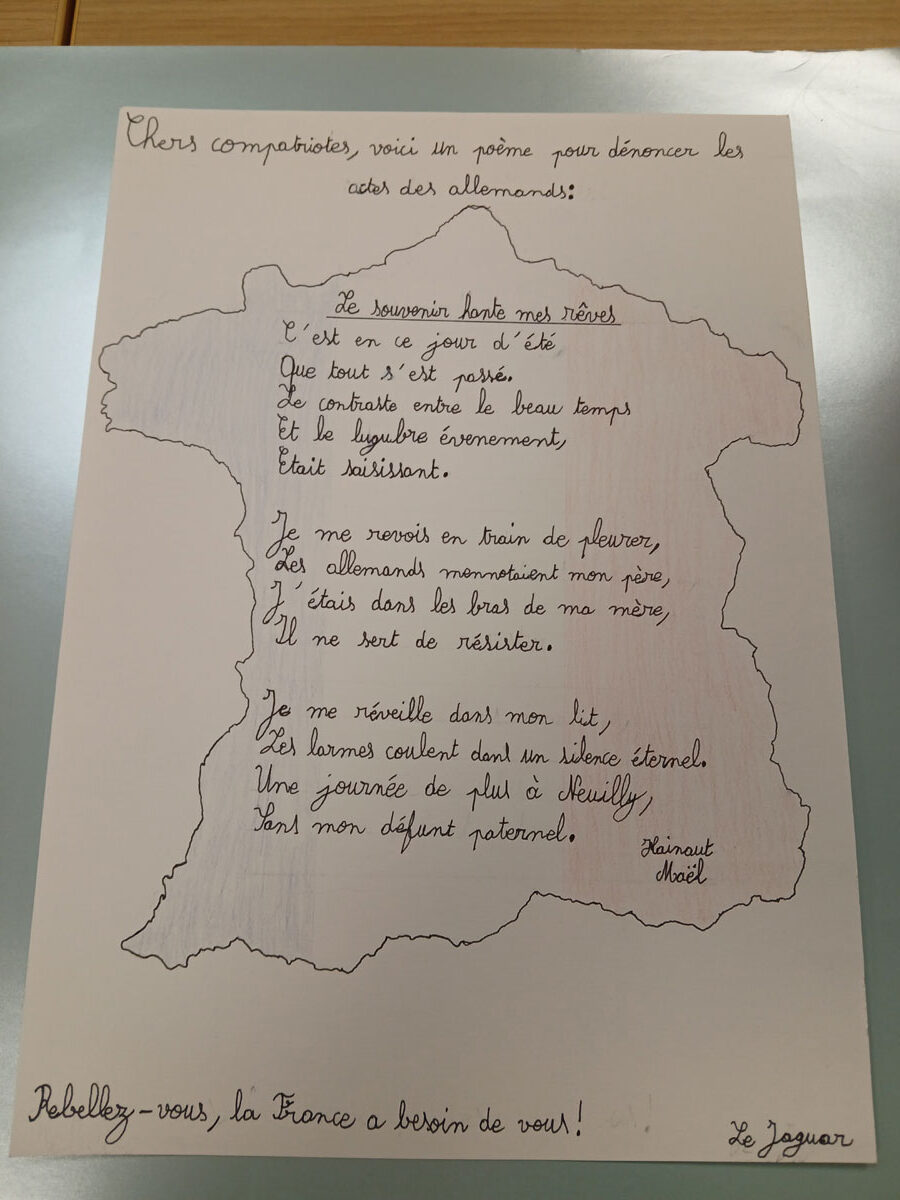 Chers compatriotes, voici un poème pour dénoncer les
actes des allemands:
Le souvenir hante mes rêves
C'est en ce jour d'été
Que tout s'est passé.
Le contraste entre le beau temps
Et le lugubre évenement,
Etait saisissant.
Je me revois en train de pleurer,
Les allemands mennotaient mon père,
J'étais dans les bras de ma mère,
Il ne sert de résister.
Je me réveille dans mon lit,
Les larmes coulent dans un silence éternel.
Une journée de plus à Neuilly,
Sans mon défunt paternel.
Hainaut
Maël
Rebellez-vous, la France a besoin de vous!
Le Jaguar